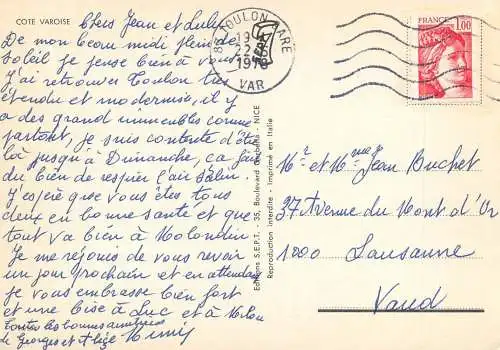 CÔTE VAROISE
Chers Jean et Lulu
De mon beau midi plein de
soleil je pense bien à vous
J'ai retrouvé Toulon très
étendu et modernisé, il y
a des grand immeubles comme
partout, je suis contente d'être
là jusqu'à Dimanche, ça fait
du bien de respirer l'air salin.
J'espère que vous êtes tous
deux en bonne santé et que
tout va bien à Molondin.
Je me réjouis de vous revoir
un jour prochain et en attendant
je vous embrasse bien fort
et une bise à Luc et à
Toutes les bonnes amitiés
de Georges et Mimi
Editions S.E.P.T. - 35, Boulevard - NICE
Reproduction interdite - Imprimé en Italie
83 TOULON GARE
19
22
1978
VAR
FRANCE
1,00
Mr et Mme Jean Buchet
37 Avenue du Mont d'Or
1000 Lausanne
Vaud